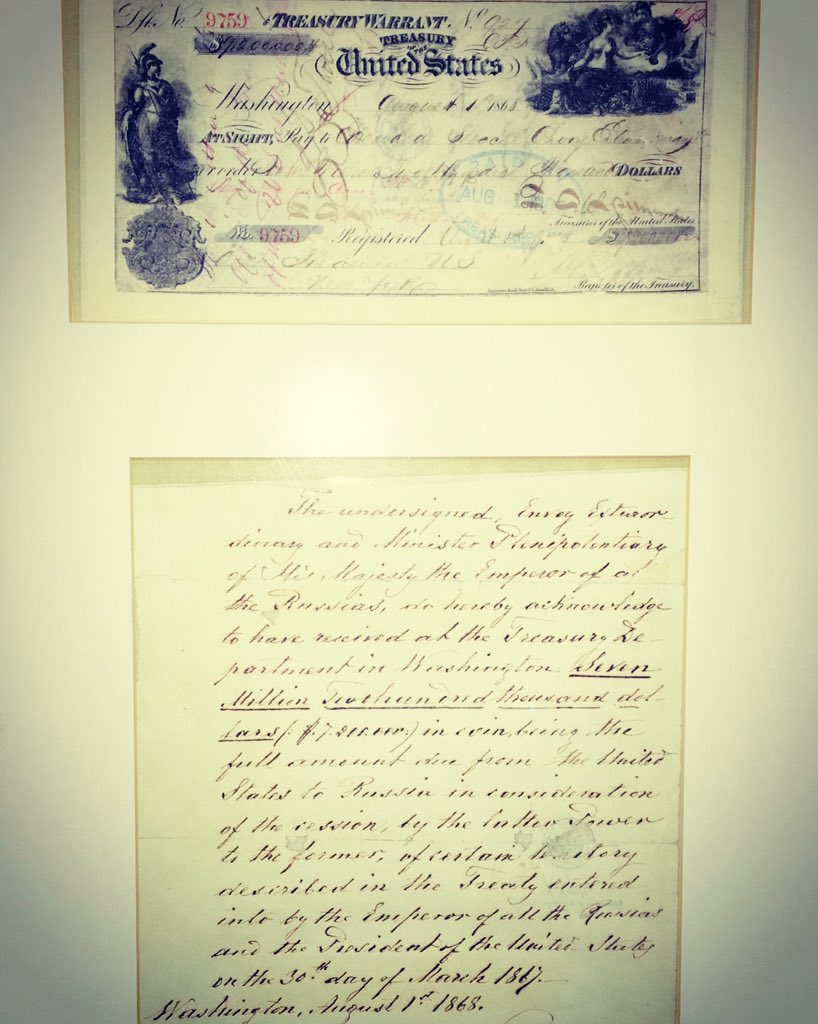 Dft. No. 9759 TREASURY WARRANT. No. 927
$7,200,000
TREASURY
OF THE
United States
Washington August 1st 1868
AT SIGHT, Pay to Edward de Stoeckl Envoy Extraordinary &c
or order Seven million two hundred thousand DOLLARS
PAID
AUG
TREAS
Treasurer of the United States
No. 9759 Registered Aug 1868 $7,200,000
Treasurer U.S.
New York
Register of the Treasury.
The undersigned, Envoy Extraor-
dinary and Minister Plenipotentiary
of His Majesty the Emperor of al
the Russias, do hereby acknowledge
to have received at the Treasury De-
partment in Washington Seven
Million Twohundred thousand dol-
lars (: $ 7.200.000:) in coin, being the
full amount due from the United
States to Russia in consideration
of the cession, by the latter Power
to the former, of certain territory
described in the Treaty entered
into by the Emperor of all the Russias
and the President of the United States
on the 30th day of March 1867.—
Washington, August 1st 1868.